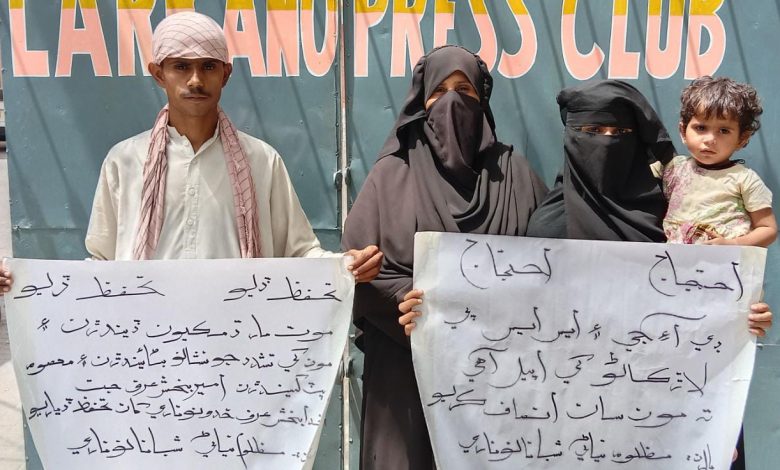 LARKANO PRESS CLUB
تحفظ ڏريو تحفظ ڏريو
موت مار ڌمڪيون ڏيندڙن ۽
مون کي تشدد جو نشانو بڻائيندڙن ۽ معصوم
پٽ کسيندڙن امير بخش عرف
خدا بخش عرف خدو کان تحفظ ڏياريو
مظلوم نياڻي شبانا
احتجاج احتجاج
ڊي آءِ جي ۽ ايس ايس پي
لاڙڪاڻو کي اپيل آهي
ته مون سان انصاف ڪريو
مظلوم نياڻي شبانا